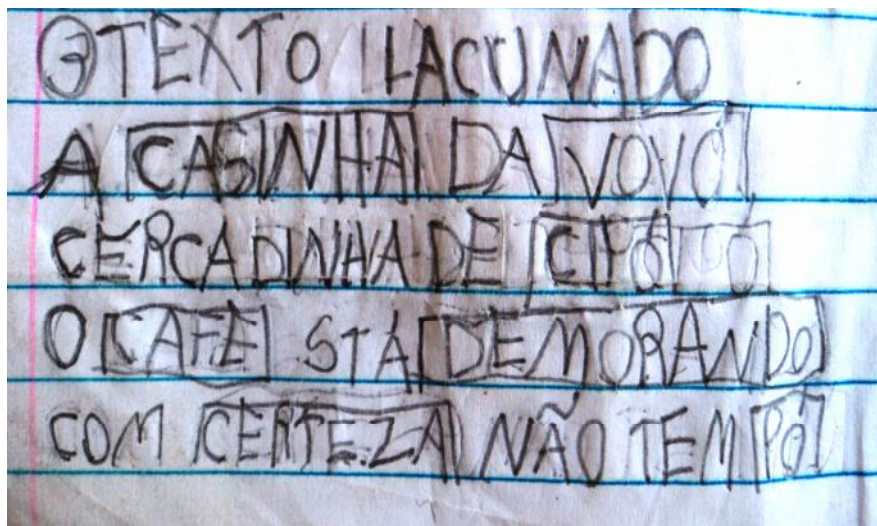 3 TEXTO LACUNADO
A CASINHA DA VOVÓ
CERCADINHA DE CIPÓ
O CAFÉ STÁ DEMORANDO
COM CERTEZA NÃO TEM PÓ